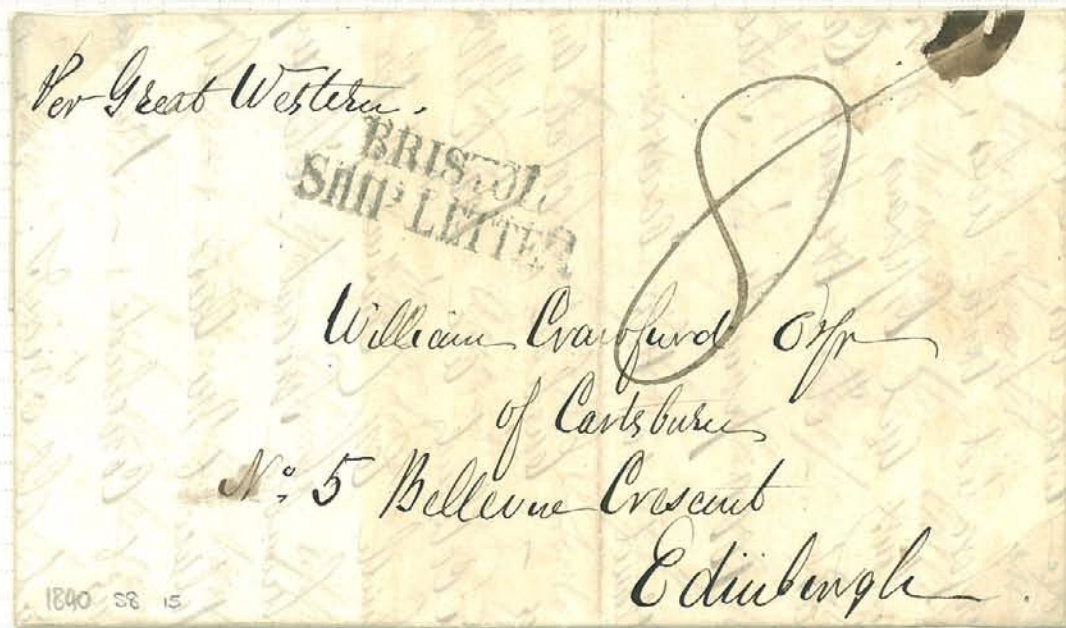 Per Great Western.
BRISTOL
SHIP LETTER
8
William Crawfurd Esqr
of Cartsburn
No. 5 Bellevue Crescent
Edinburgh
1840 S8 15